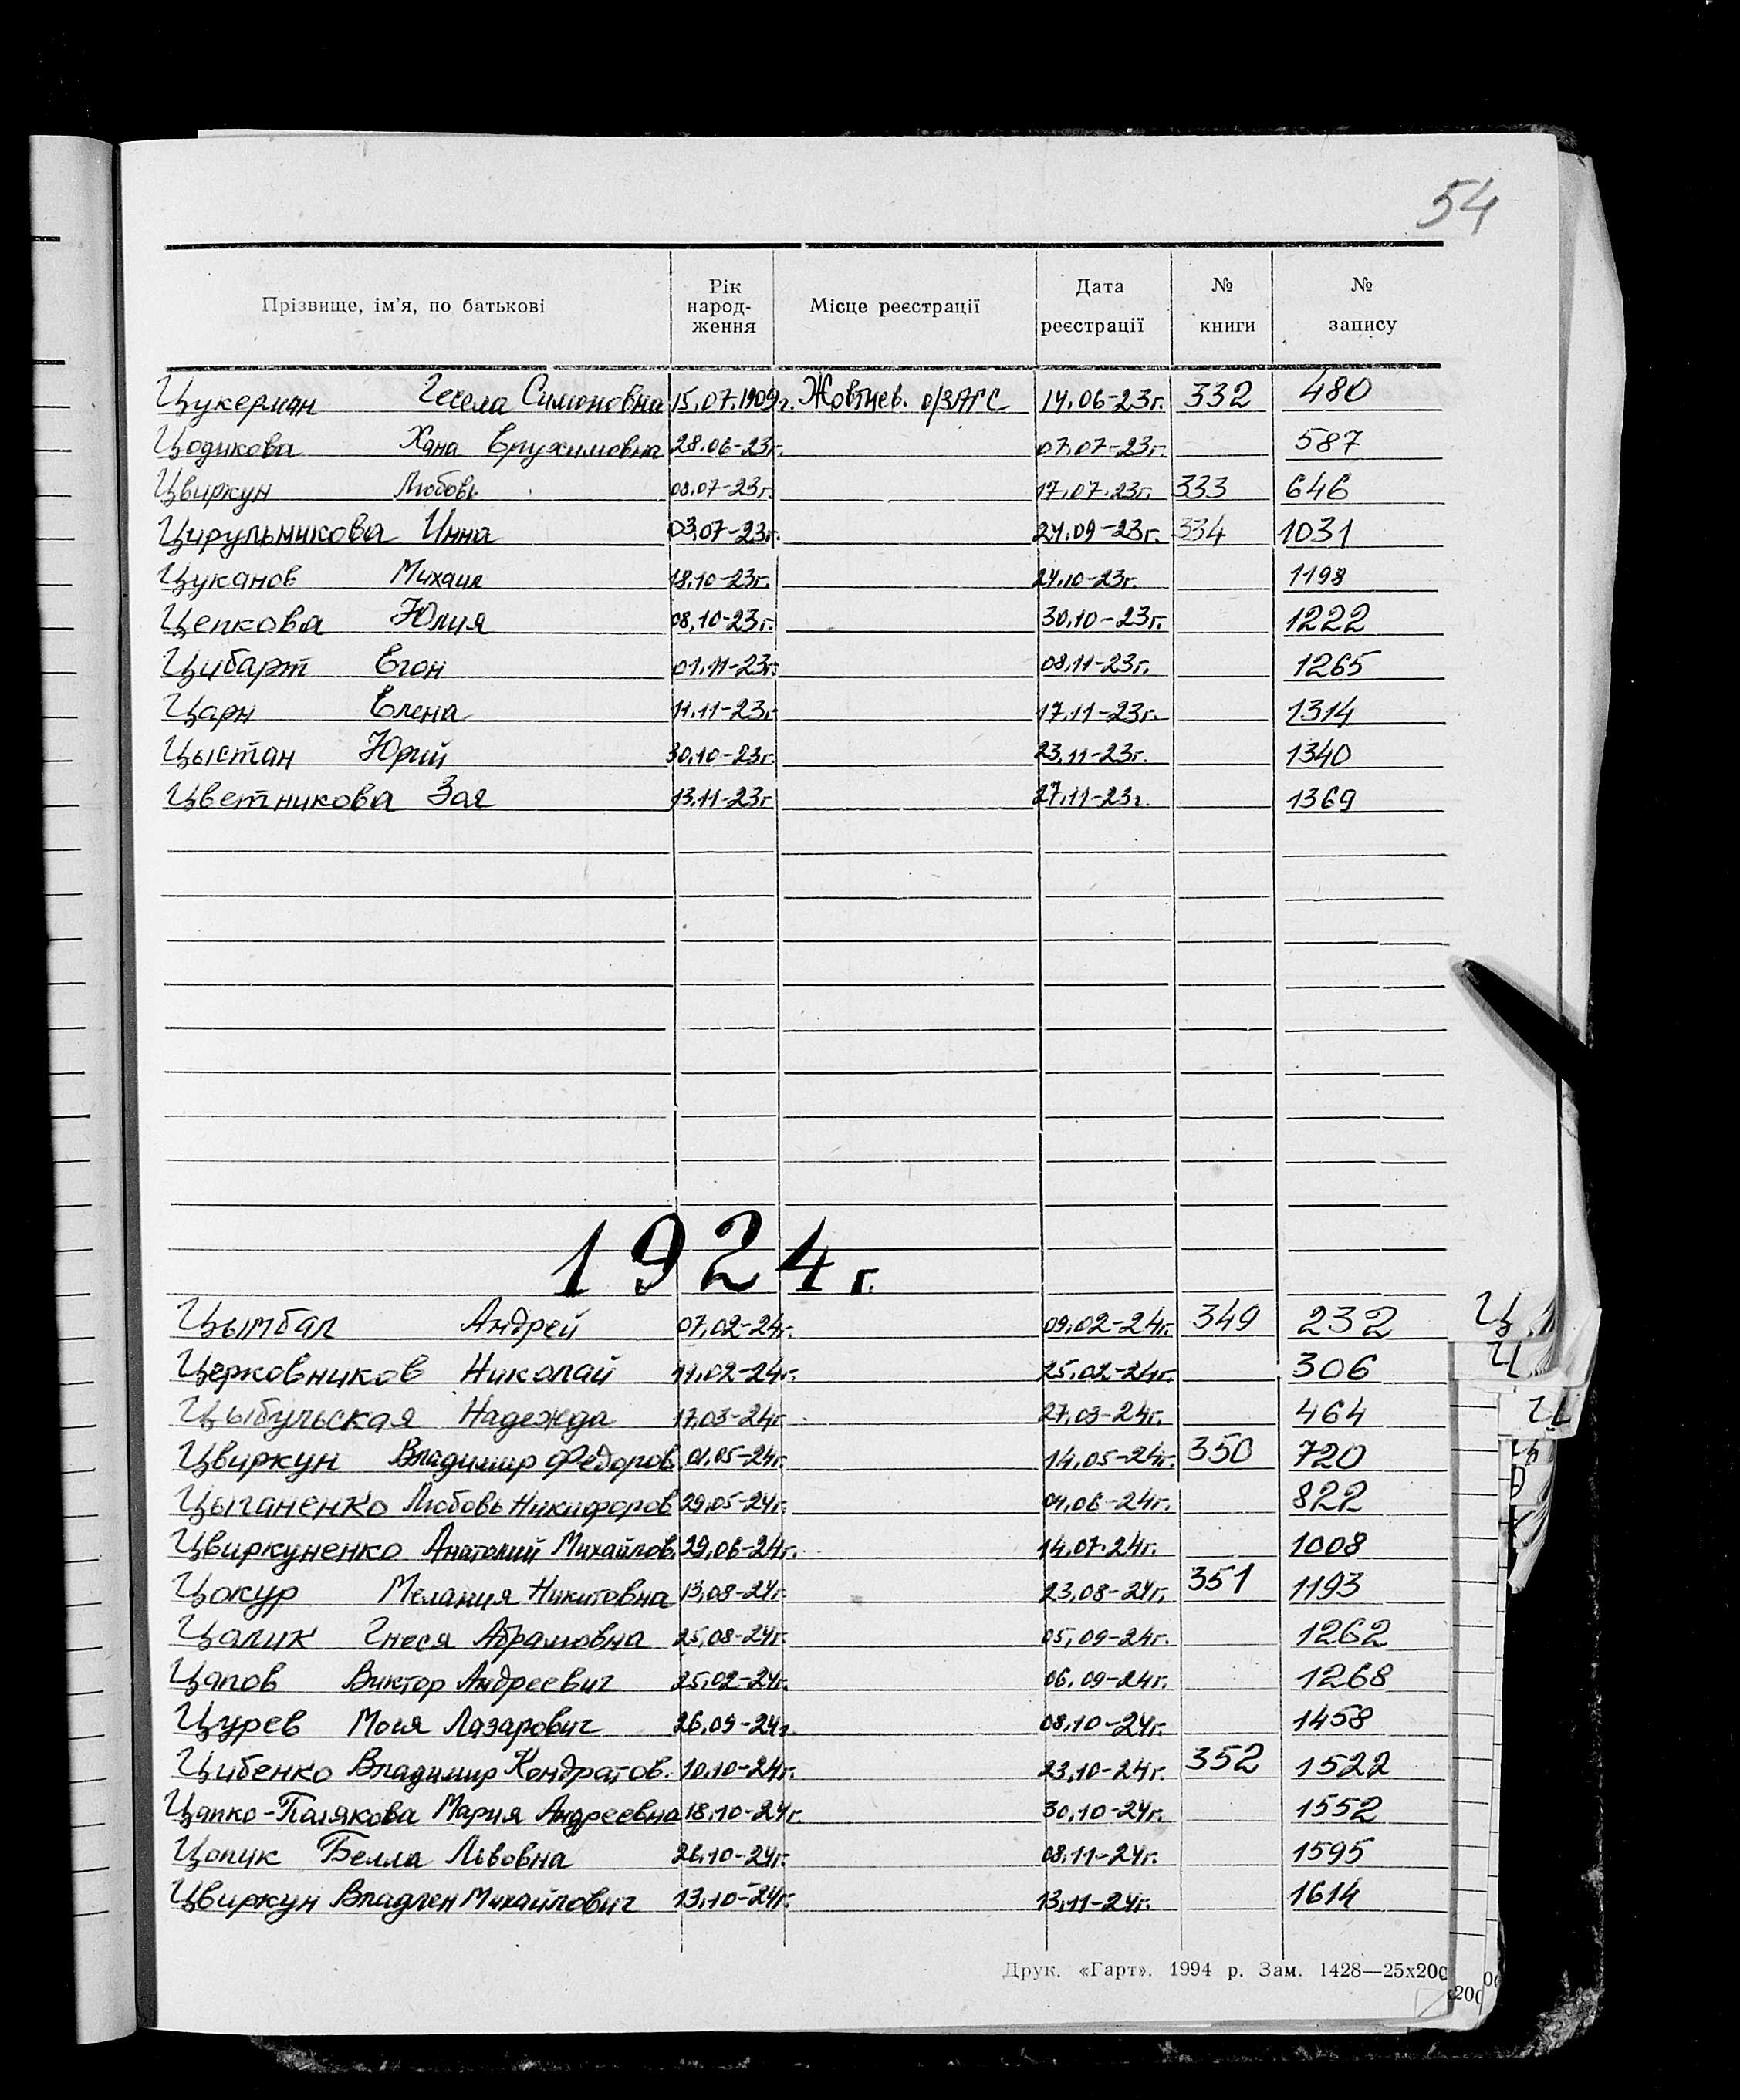 54
Прізвище, ім'я, по батькові | Рік народ-ження | Місце реєстрації | Дата реєстрації | № книги | № запису
Цукерман Гесела Симоновна 15.07.1909г. Жовтнев. о/ЗАГС 14.06-23г. 332 480
Цодикова Хана Ерухимовна 28.06-23г. 07.07-23г. 587
Цвиркун Любовь 08.07-23г. 17.07.23г. 333 646
Цирульникова Инна 03.07-23г. 24.09-23г. 334 1031
Цуканов Михаил 18.10-23г. 24.10-23г. 1198
Цепкова Юлия 08.10-23г. 30.10-23г. 1222
Цибарт Егон 01.11-23г. 08.11-23г. 1265
Царн Елена 11.11-23г. 17.11-23г. 1314
Цыстан Юрий 30.10-23г. 23.11-23г. 1340
Цветникова Зоя 13.11-23г 27.11-23г. 1369
1924г.
Цымбал Андрей 07.02-24г. 09.02-24г. 349 232
Церковников Николай 11.02-24г. 25.02-24г. 306
Цыбульская Надежда 17.03-24г. 27.03-24г. 464
Цвиркун Владимир Федоров. 01.05-24г. 14.05-24г. 350 720
Цыганенко Любовь Никифоров 29.05-24г. 04.06-24г. 822
Цвиркуненко Анатолий Михайлов. 29.06-24г. 14.07.24г. 1008
Цокур Мелания Никитовна 13.08-24г. 23.08-24г. 351 1193
Цалик Гнеся Абрамовна 25.08-24г. 05.09-24г. 1262
Цапов Виктор Андреевич 25.02-24г. 06.09-24г. 1268
Цурев Мося Лазарович 26.09-24г. 08.10-24г. 1458
Цибенко Владимир Кондратов. 10.10-24г. 23.10-24г. 352 1522
Цапко-Полякова Мария Андреевна 18.10-24г. 30.10-24г. 1552
Цопик Белла Львовна 26.10-24г. 08.11-24г. 1595
Цвиркун Владлен Михайлович 13.10-24г. 13.11-24г. 1614
Ц
Ц
Ц
Друк. «Гарт». 1994 р. Зам. 1428—25х200